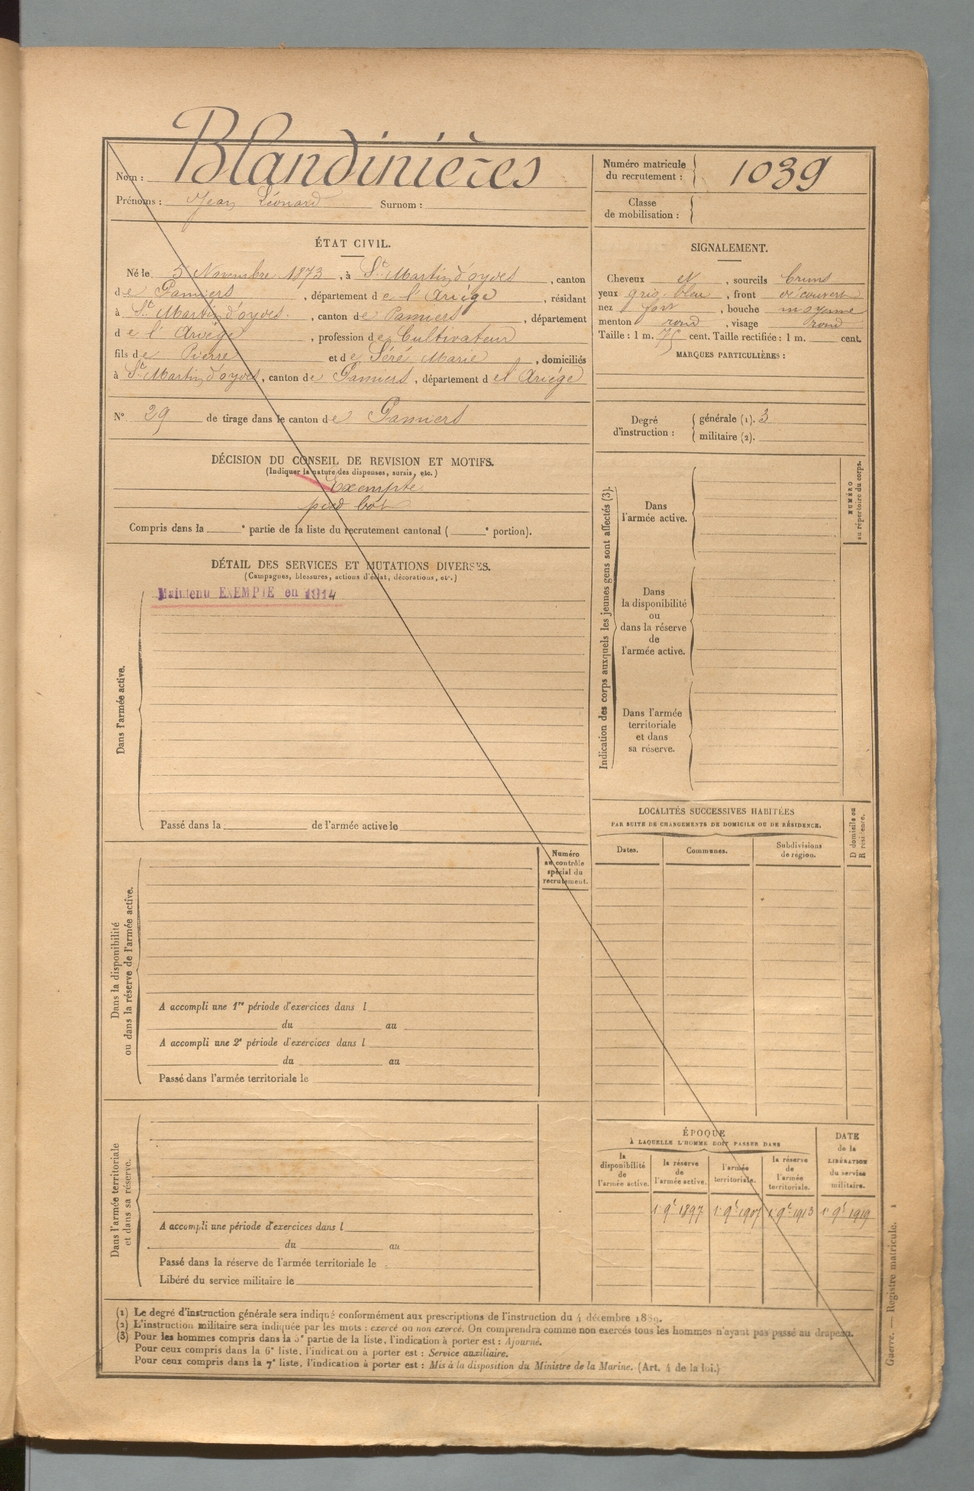 Nom : Blandinières
Prénoms : Jean Léonard Surnom :
Numéro matricule du recrutement : 1039
Classe de mobilisation :
ÉTAT CIVIL.
Né le 5 Novembre 1873, à St Martin d'oydes, canton
de Pamiers, département de l'Ariège, résidant
à St Martin d'oydes, canton de Pamiers, département
de l'Ariège, profession de Cultivateur
fils de Pierre et de Séré Marie, domiciliés
à St Martin d'oydes, canton de Pamiers, département de l'Ariège
N° 29 de tirage dans le canton de Pamiers
SIGNALEMENT.
Cheveux et, sourcils bruns
yeux gris bleu, front découvert
nez fort, bouche moyenne
menton rond, visage rond
Taille : 1 m. 75 cent. Taille rectifiée : 1 m. cent.
MARQUES PARTICULIÈRES :
Degré d'instruction : générale (1). 3
militaire (2).
DÉCISION DU CONSEIL DE REVISION ET MOTIFS.
(Indiquer la nature des dispenses, sursis, etc.)
Exempté
pied bot
Compris dans la e partie de la liste du recrutement cantonal ( e portion).
DÉTAIL DES SERVICES ET MUTATIONS DIVERSES.
(Campagnes, blessures, actions d'éclat, décorations, etc.)
Maintenu EXEMPTÉ en 1914
Dans l'armée active.
Passé dans la de l'armée active le
Indication des corps auxquels les jeunes gens sont affectés (3).
NUMÉRO au répertoire du corps.
Dans l'armée active.
Dans la disponibilité ou dans la réserve de l'armée active.
Dans l'armée territoriale et dans sa réserve.
LOCALITÉS SUCCESSIVES HABITÉES
PAR SUITE DE CHANGEMENTS DE DOMICILE OU DE RÉSIDENCE.
Dates. Communes. Subdivisions de région.
D domicile ou R résidence.
Numéro au contrôle spécial du recrutement.
Dans la disponibilité ou dans la réserve de l'armée active.
A accompli une 1re période d'exercices dans l
du au
A accompli une 2e période d'exercices dans l
du au
Passé dans l'armée territoriale le
Dans l'armée territoriale et dans sa réserve.
A accompli une période d'exercices dans l
du au
Passé dans la réserve de l'armée territoriale le
Libéré du service militaire le
ÉPOQUE
À LAQUELLE L'HOMME DOIT PASSER DANS
la disponibilité de l'armée active.
la réserve de l'armée active.
l'armée territoriale.
la réserve de l'armée territoriale.
DATE de la LIBÉRATION du service militaire.
1 9e 1897 1 9e 1907 1 9e 1913 1 9e 1919
(1) Le degré d'instruction générale sera indiqué conformément aux prescriptions de l'instruction du 4 décembre 1889.
(2) L'instruction militaire sera indiquée par les mots : exercé ou non exercé. On comprendra comme non exercés tous les hommes n'ayant pas passé au drapeau.
(3) Pour les hommes compris dans la 5e partie de la liste, l'indication à porter est : Ajourné.
Pour ceux compris dans la 6e liste, l'indication à porter est : Service auxiliaire.
Pour ceux compris dans la 7e liste, l'indication à porter est : Mis à la disposition du Ministre de la Marine. (Art. 4 de la loi.)
Guerre. — Registre matricule. 1